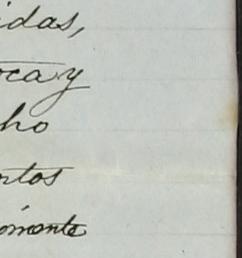 idas,
oca y
ho
ntos
omente